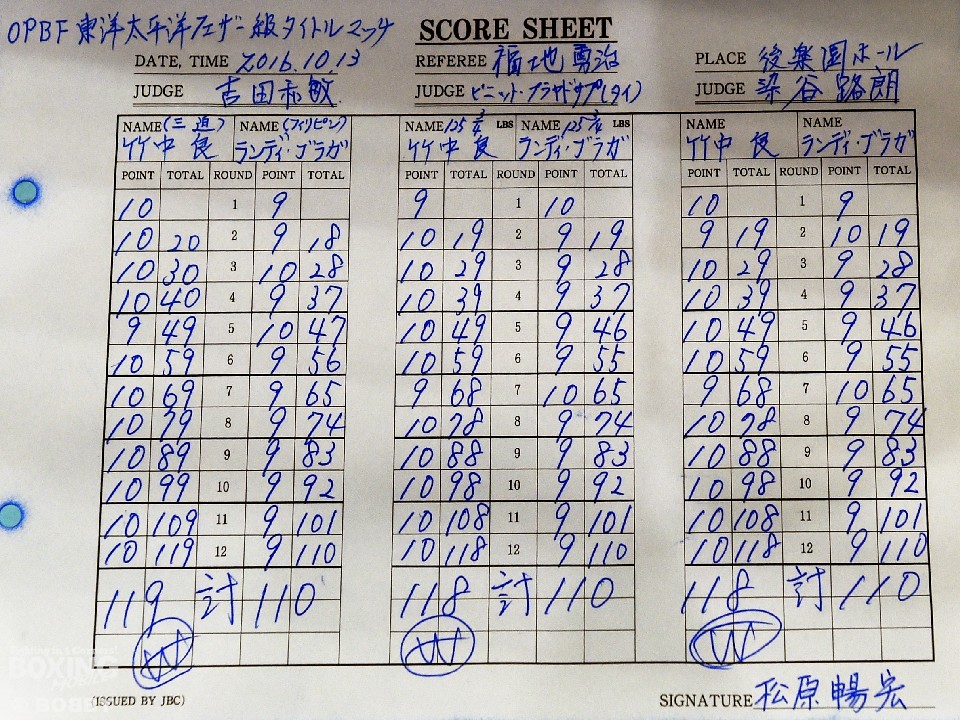 OPBF東洋太平洋フェザー級タイトルマッチ
SCORE SHEET
DATE, TIME 2016.10.13 REFEREE 福地勇治 PLACE 後楽園ホール
JUDGE 吉田和敏 JUDGE ピニット・プラヤドサブ(タイ) JUDGE 染谷路朗
NAME(三迫) NAME(フィリピン) NAME 125 3/4 LBS NAME 125 3/4 LBS NAME NAME
竹中良 ランディ・ブラガ 竹中良 ランディ・ブラガ 竹中良 ランディ・ブラガ
POINT TOTAL ROUND POINT TOTAL POINT TOTAL ROUND POINT TOTAL POINT TOTAL ROUND POINT TOTAL
10 1 9 9 1 10 10 1 9
10 20 2 9 18 10 19 2 9 19 9 19 2 10 19
10 30 3 10 28 10 29 3 9 28 10 29 3 9 28
10 40 4 9 37 10 39 4 9 37 10 39 4 9 37
9 49 5 10 47 10 49 5 9 46 10 49 5 9 46
10 59 6 9 56 10 59 6 9 55 10 59 6 9 55
10 69 7 9 65 9 68 7 10 65 9 68 7 10 65
10 79 8 9 74 10 78 8 9 74 10 78 8 9 74
10 89 9 9 83 10 88 9 9 83 10 88 9 9 83
10 99 10 9 92 10 98 10 9 92 10 98 10 9 92
10 109 11 9 101 10 108 11 9 101 10 108 11 9 101
10 119 12 9 110 10 118 12 9 110 10 118 12 9 110
119 計 110 118 計 110 118 計 110
W W W
BOXING
(ISSUED BY JBC) SIGNATURE 松原暢宏